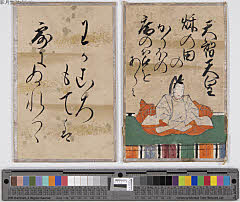 天智天皇
秌の田の
かりほの
庵のとまを
あらみ
わかころ
もては
露にぬれつゝ